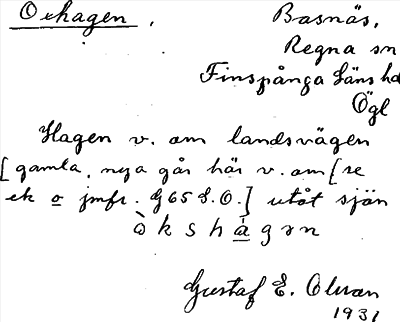 Oxhagen.
Basnäs,
Regna sn
Finspånga läns hd
Ögl
Hagen v. om landsvägen
[gamla, nya går här v. om [se
ek o jmfr. G65 S.O.] utåt sjön
ò k s h à g ə n
Gustaf E. Olsson
1931